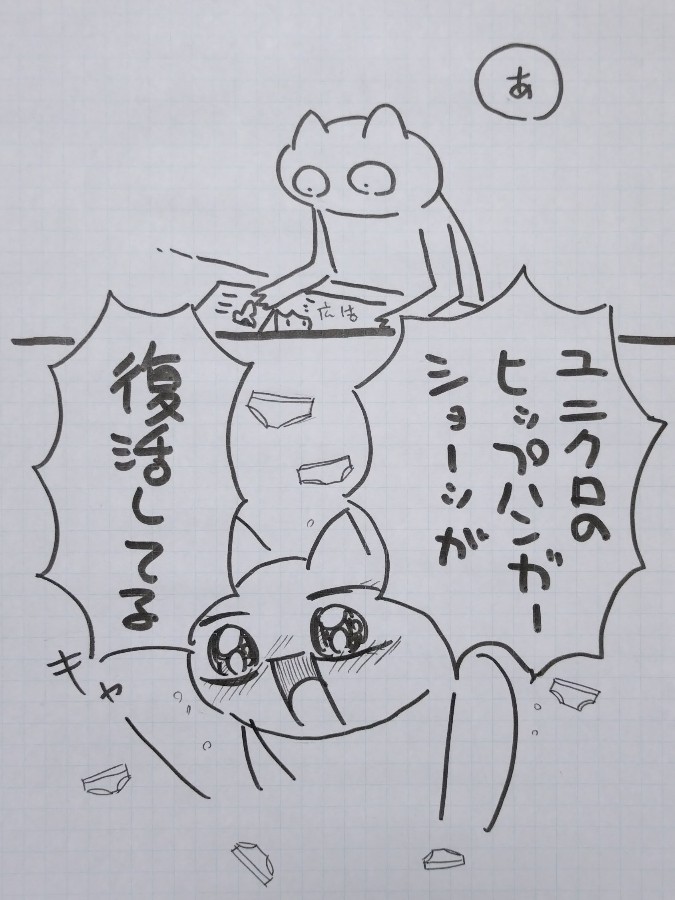 あ
広告
ユニクロの
ヒップハンガー
ショーツが
復活してる
キャ